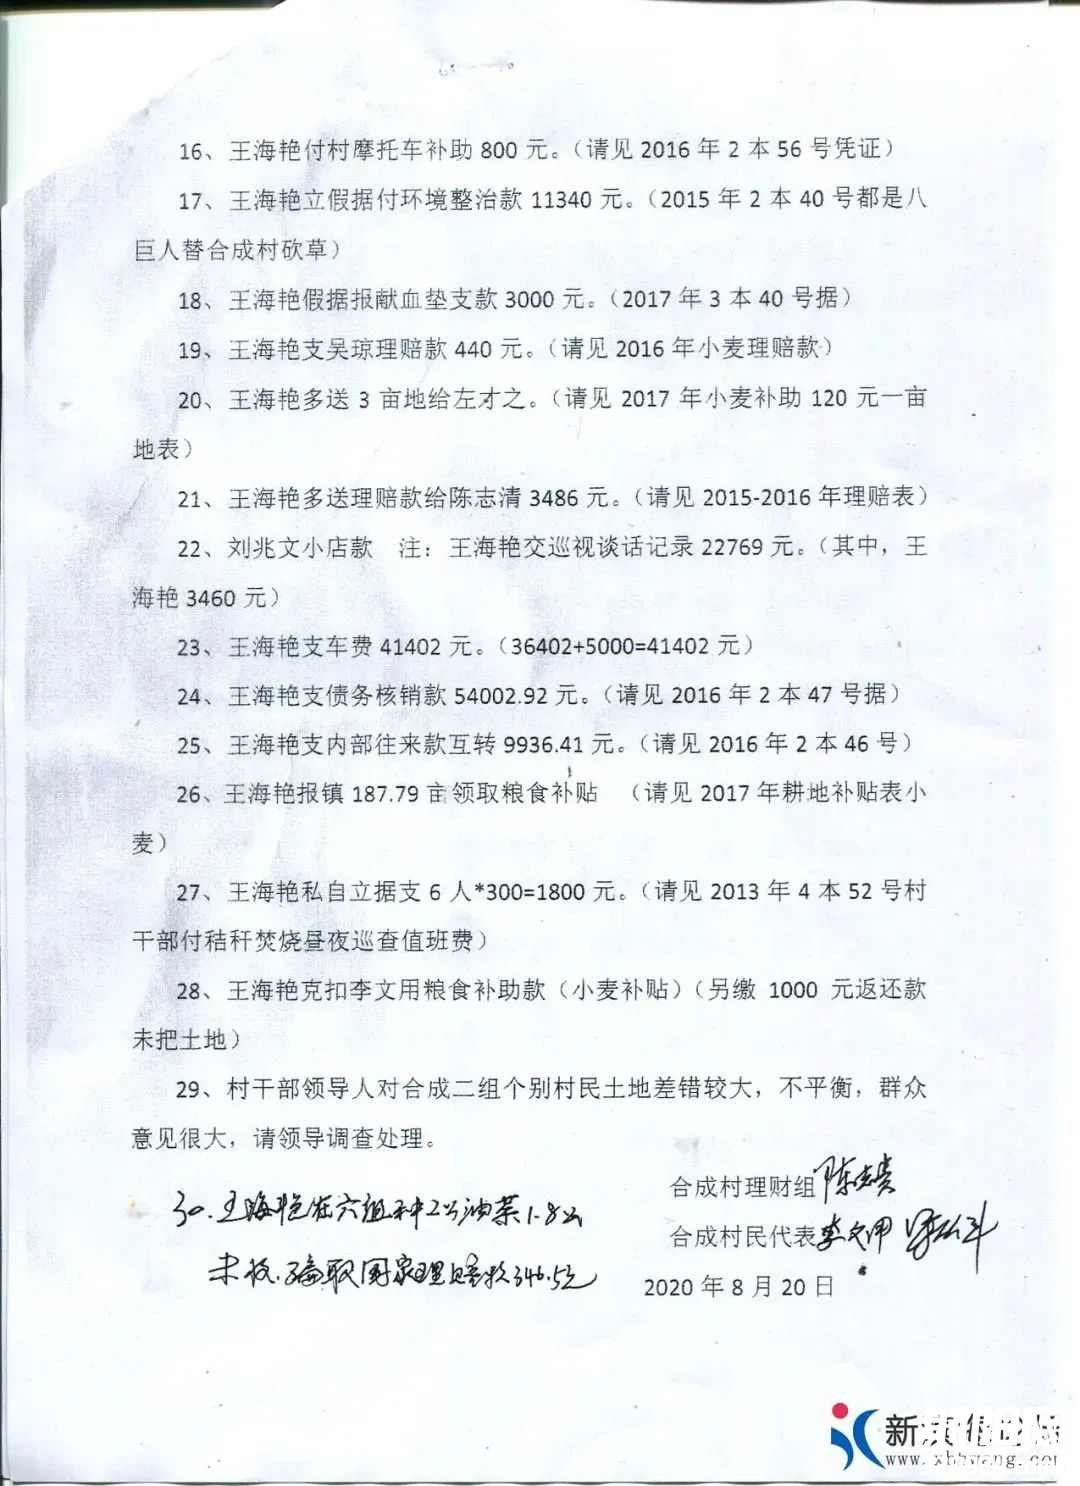 16、王海艳付村摩托车补助 800 元。（请见 2016 年 2 本 56 号凭证）
17、王海艳立假据付环境整治款 11340 元。（2015 年 2 本 40 号都是八
巨人替合成村砍草）
18、王海艳假据报献血垫支款 3000 元。（2017 年 3 本 40 号据）
19、王海艳支吴琼理赔款 440 元。（请见 2016 年小麦理赔款）
20、王海艳多送 3 亩地给左才之。（请见 2017 年小麦补助 120 元一亩
地表）
21、王海艳多送理赔款给陈志清 3486 元。（请见 2015-2016 年理赔表）
22、刘兆文小店款　注：王海艳交巡视谈话记录 22769 元。（其中，王
海艳 3460 元）
23、王海艳支车费 41402 元。（36402+5000=41402 元）
24、王海艳支债务核销款 54002.92 元。（请见 2016 年 2 本 47 号据）
25、王海艳支内部往来款互转 9936.41 元。（请见 2016 年 2 本 46 号）
26、王海艳报镇 187.79 亩领取粮食补贴　（请见 2017 年耕地补贴表小
麦）
27、王海艳私自立据支 6 人*300=1800 元。（请见 2013 年 4 本 52 号村
干部付秸秆焚烧昼夜巡查值班费）
28、王海艳克扣李文用粮食补助款（小麦补贴）（另缴 1000 元返还款
未把土地）
29、村干部领导人对合成二组个别村民土地差错较大，不平衡，群众
意见很大，请领导调查处理。
30.王海艳在六组种 油菜1.8
骗取国家理赔款346.5元
合成村理财组
合成村民代表
2020 年 8 月 20 日